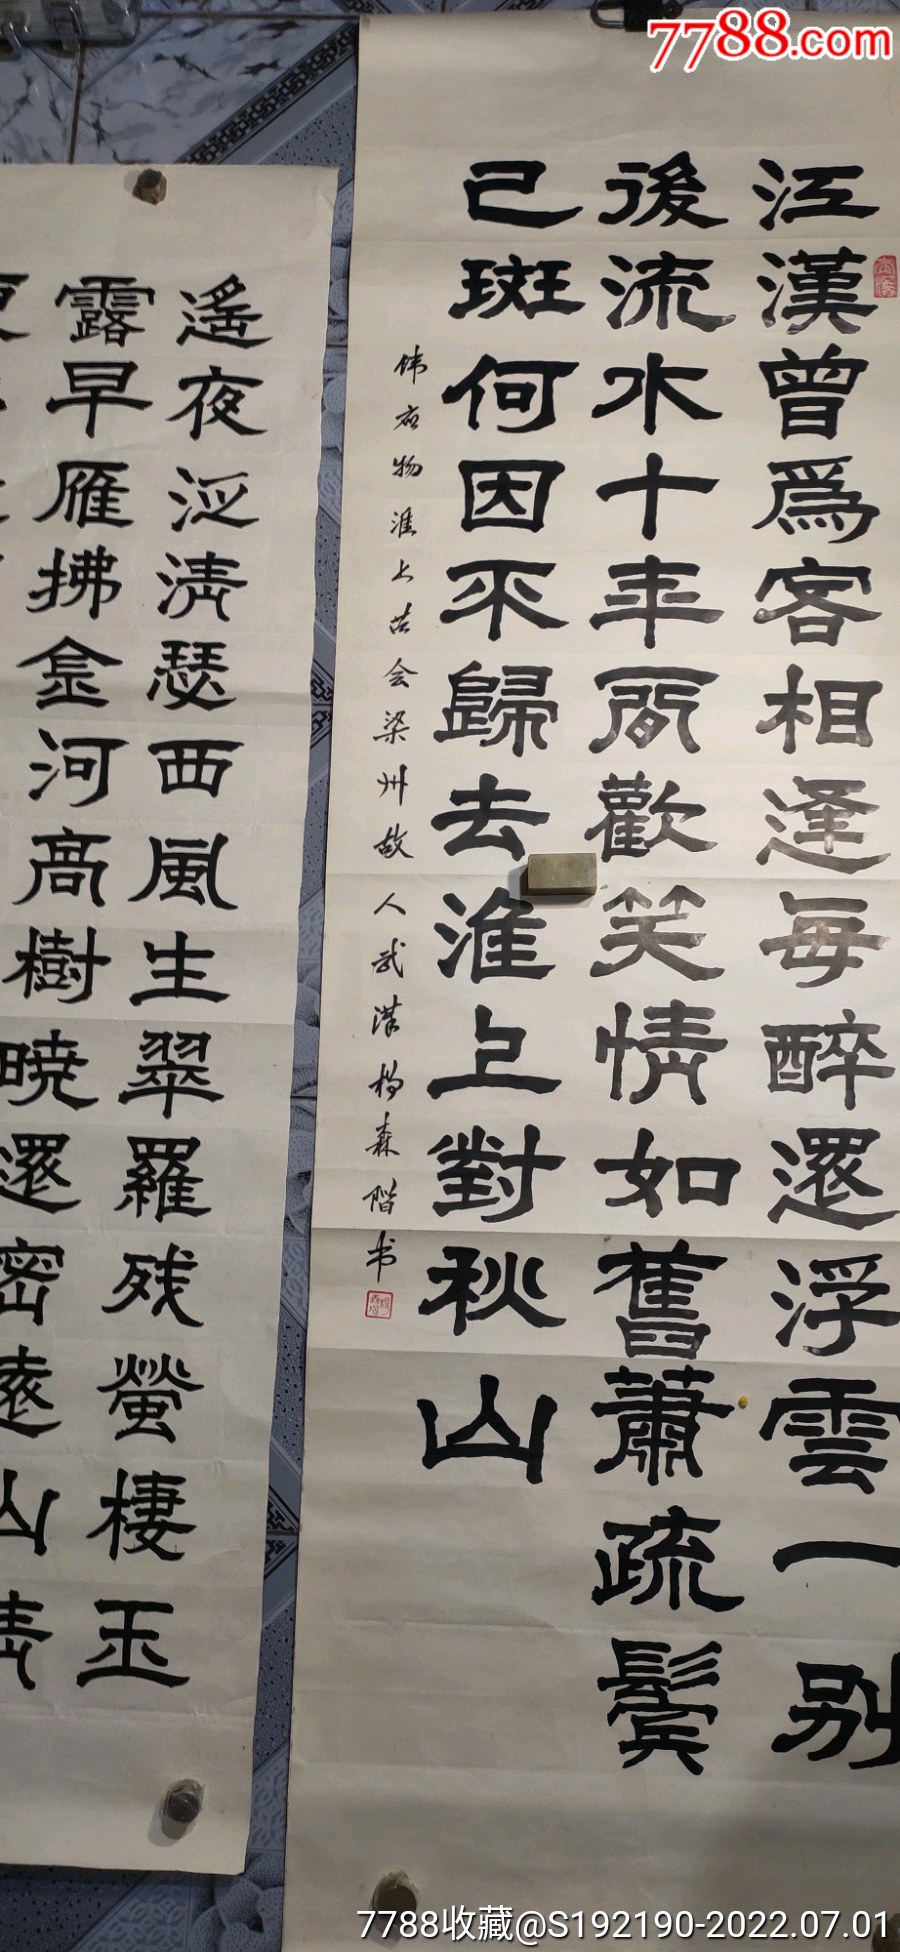 7788.com
江漢曾爲客相逢每醉還浮雲一别
後流水十年間歡笑情如舊蕭疏鬢
己斑何因不歸去淮上對秋山
韩应物淮上喜会梁州故人武漢楊森階书
遙夜泛清瑟西風生翠羅殘螢棲玉
露早雁拂金河高樹曉還密遠山清
7788收藏@S192190-2022.07.01